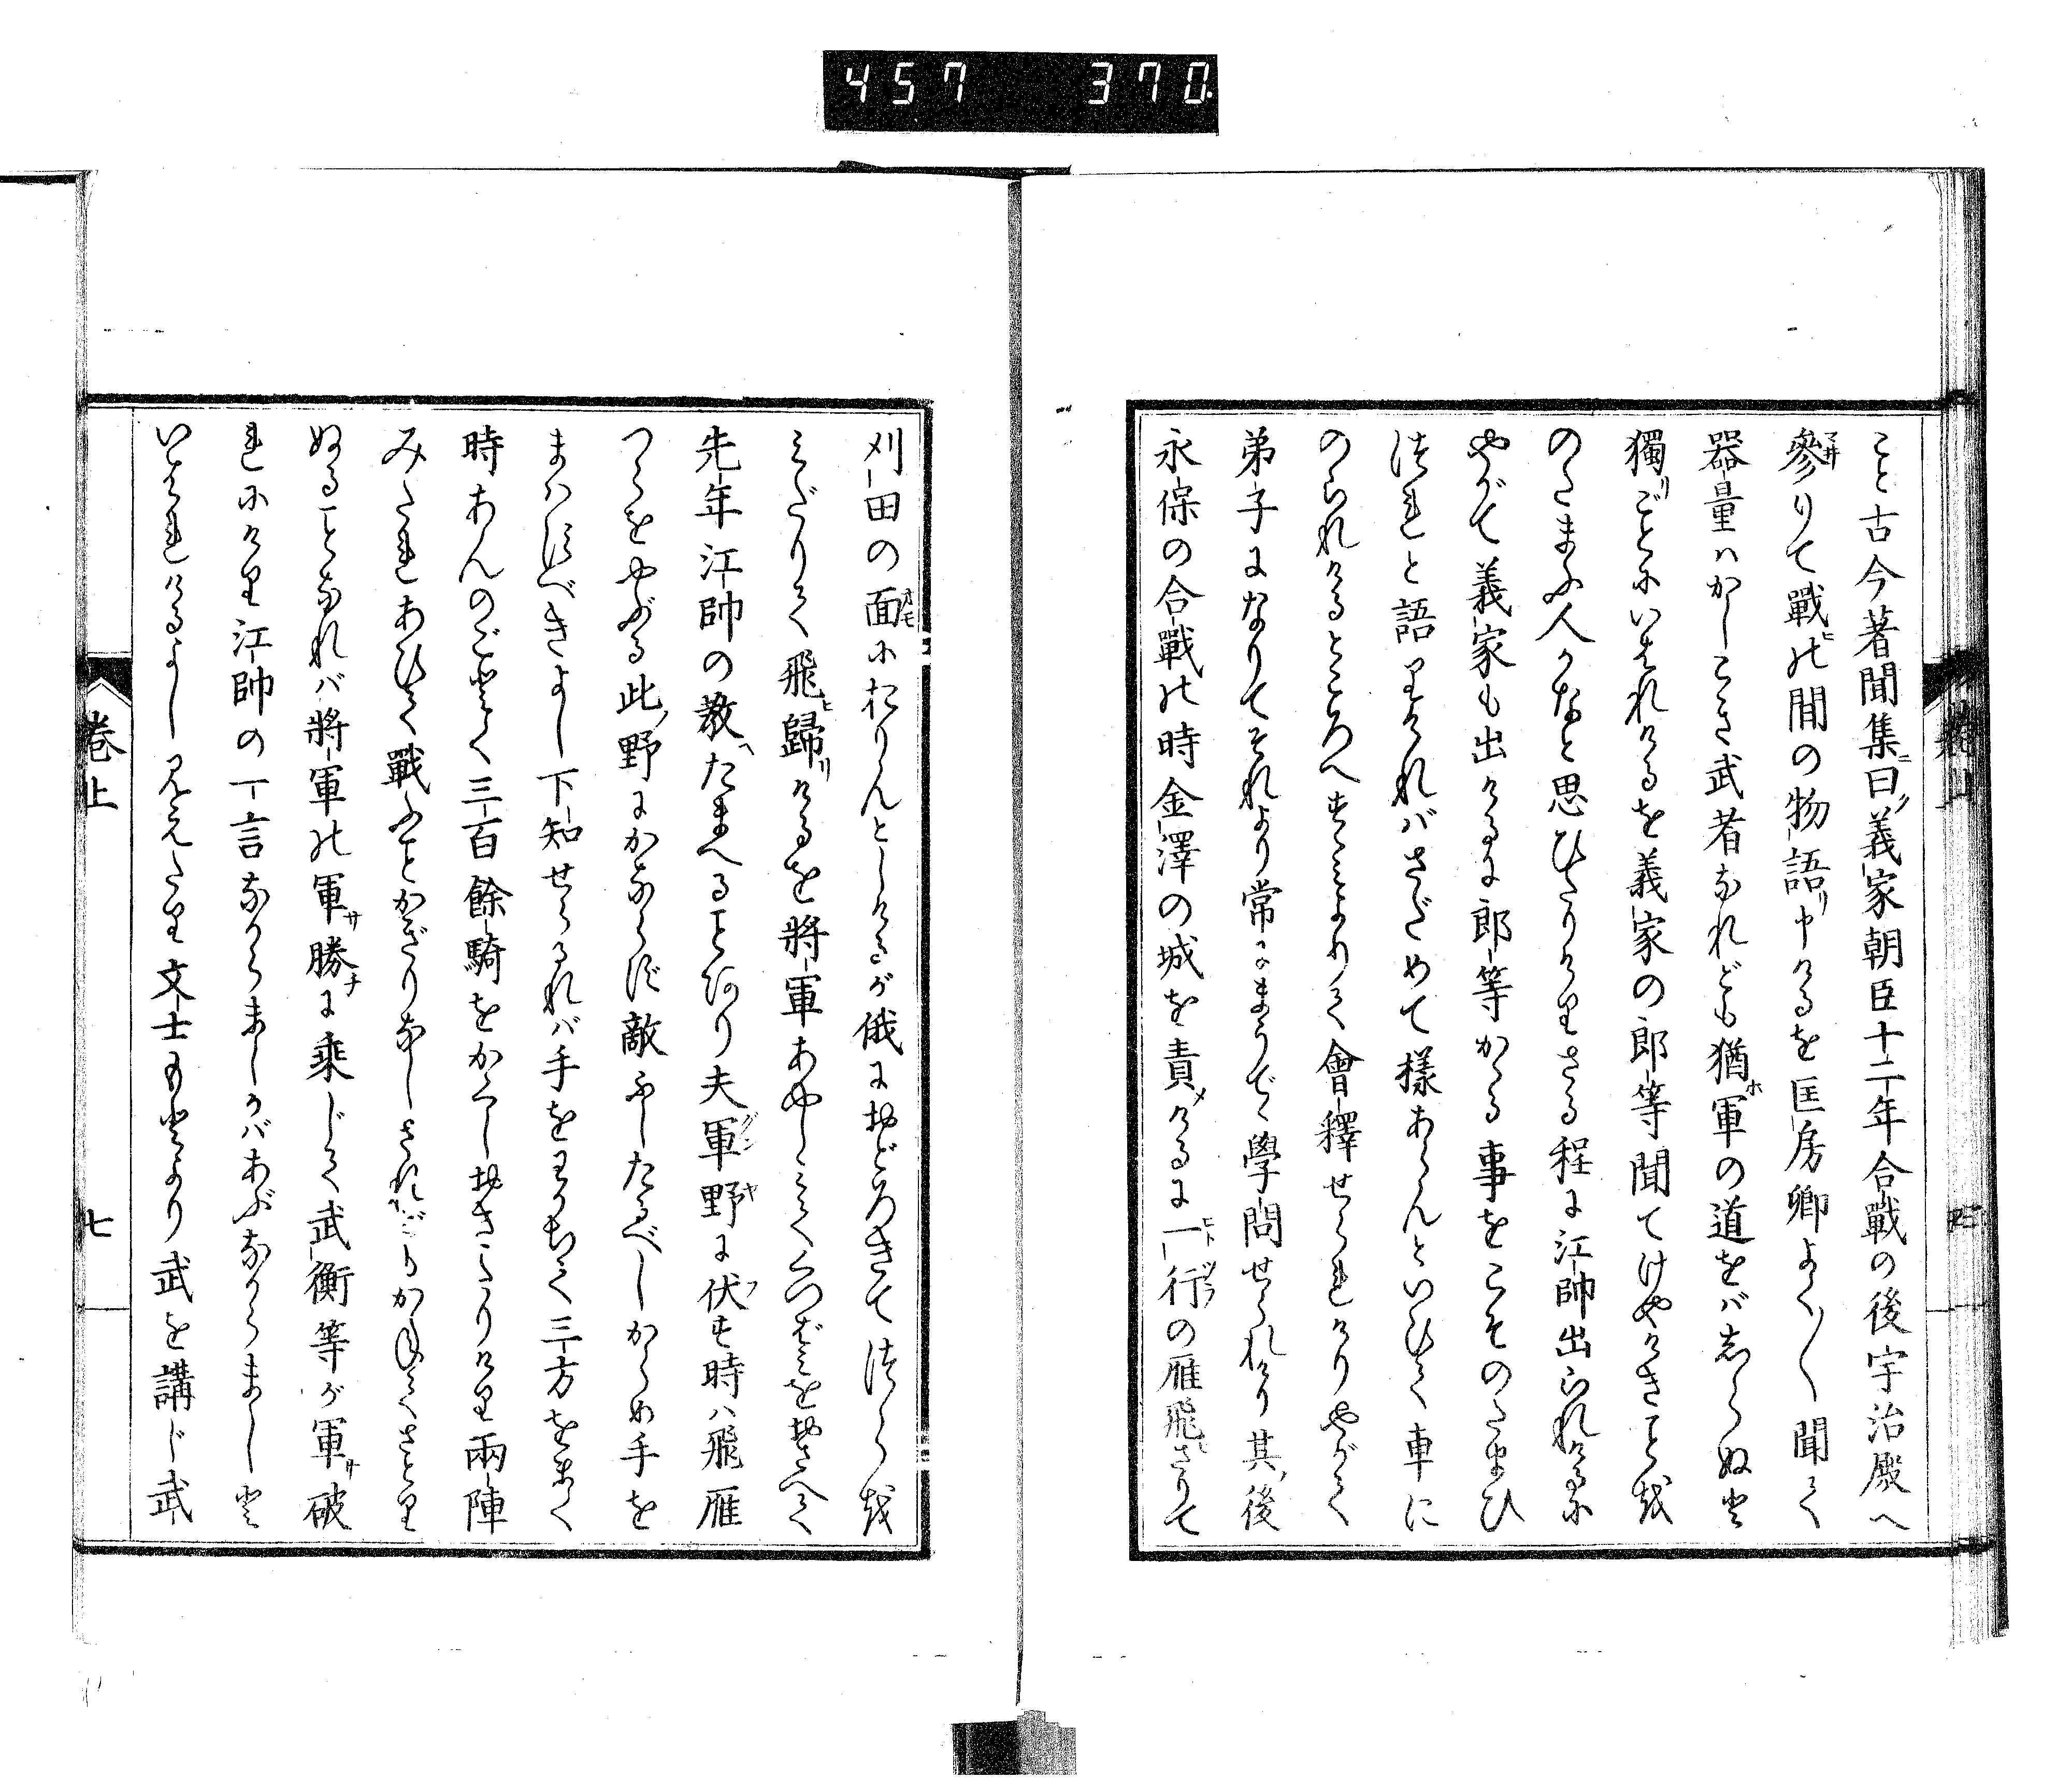 457 370
こと古今著聞集ニ曰ク義家朝臣十二年合戰の後宇治殿へ
參りて戰ヒの間の物語リ申けるを匡房卿よく〳〵聞て
器量ハかしこき武者なれども猶ホ軍の道をバしらぬと
獨リごとにいはれけるを義家の郎等聞てけやけきことを
のたまふ人かなと思ひたりけりさる程に江帥出られけるに
やがて義家も出けるに郎等かゝる事をこそのたまひ
つれと語りければさだめて樣あらんといひて車に
のられけるところへすゝみよりて會釋せられけりやがて
弟子になりてそれより常にまうで學問せられけり其ノ後
永保の合戰の時金澤の城を責メけるに一ト行ツラの雁飛ヒさりて
刈田の面オモにおりんとしけるが俄におどろきてつらを
みだりて飛ヒ歸リけるを將軍あやしみてくつばみをおさへて
先年江帥の教ヘたまへることあり夫軍グン野ヤに伏フす時ハ飛雁
つらをやぶる此ノ野にかならず敵ふしたるべしからめ手を
まハすべきよし下知せらるれバ手をわかちて三方をまく
時あんのごとく三百餘騎をかくしおきたりけり兩陣
みだれあひて戰ふことかぎりなしされどもかねてさとり
ぬることなれバ將軍の軍サ勝チに乘じて武衡等が軍サ破
れにけり江帥の一言なからましかバあぶなからましと
いはれけるよし見えたり文士もとより武を講じ武
卷上
七